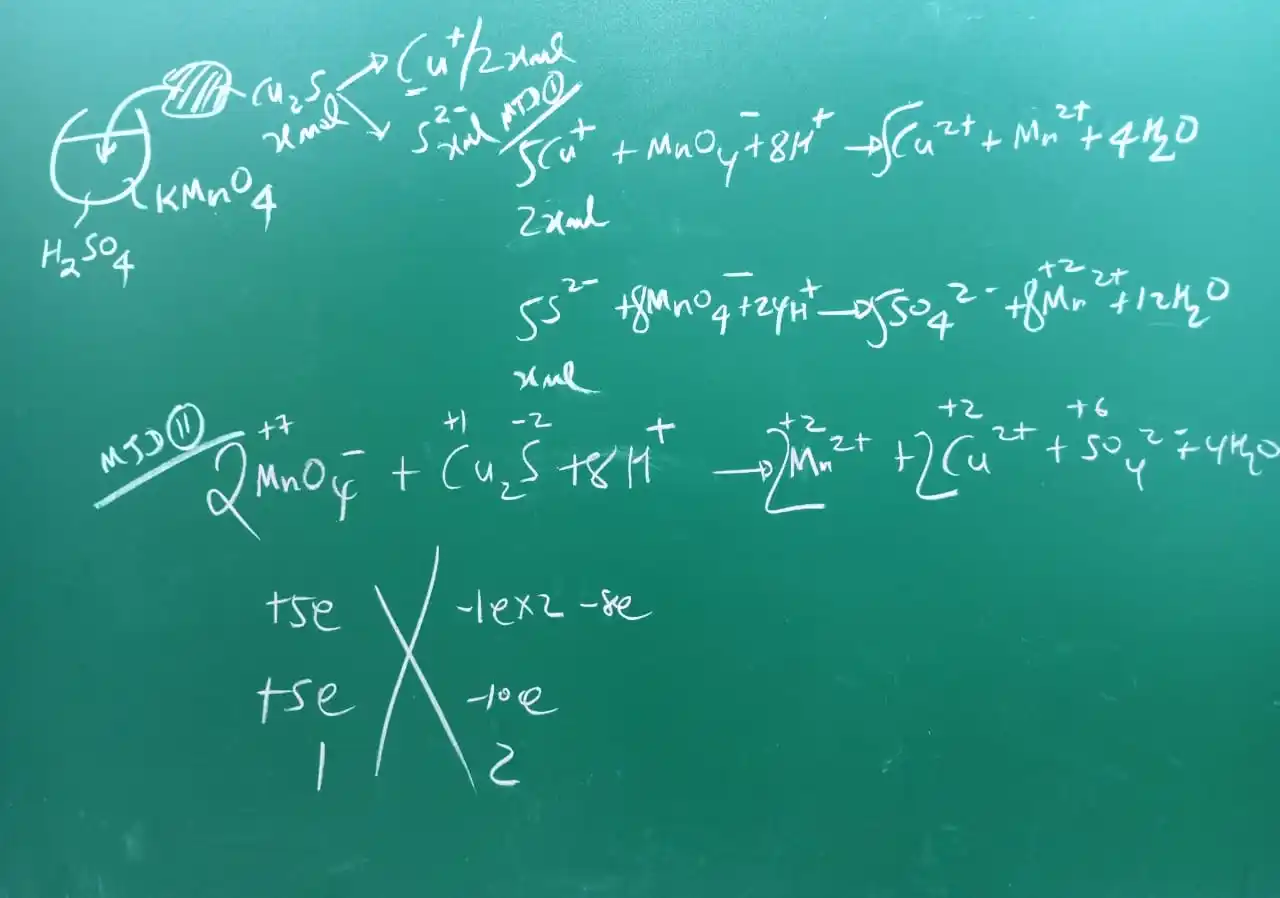 Cu₂S → Cu⁺/2xmol
xmol
S²⁻ xmol
KMnO₄
H₂SO₄
MTD ①
5Cu⁺ + MnO₄⁻ + 8H⁺ → 5Cu²⁺ + Mn²⁺ + 4H₂O
2xmol
+2
5S²⁻ + 8MnO₄⁻ + 24H⁺ → 5SO₄²⁻ + 8Mn²⁺ + 12H₂O
xmol
MTD ⑪
+7 +1 -2 +2 +2 +6
2MnO₄⁻ + Cu₂S + 8H⁺ → 2Mn²⁺ + 2Cu²⁺ + SO₄²⁻ + 4H₂O
+5e -1e×2 -8e
+5e -10e
1 2